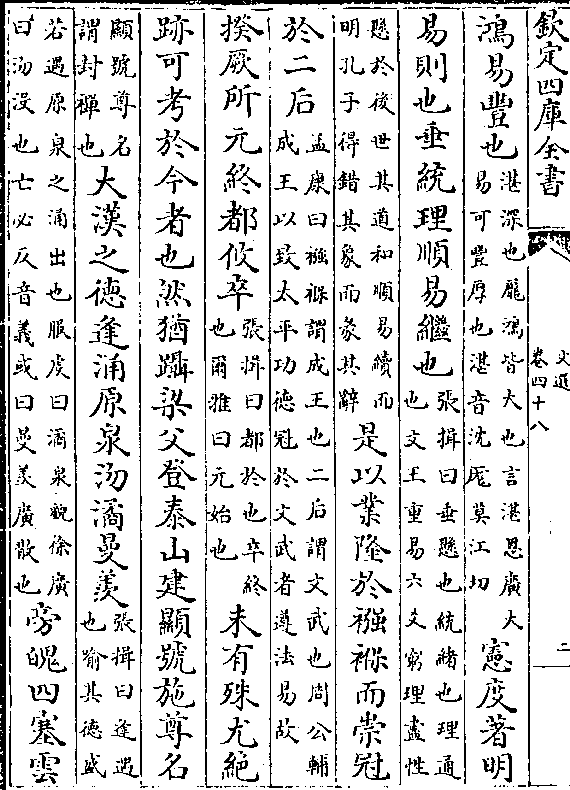 欽定四庫全書
文選
卷四十八
二
鴻易豐也
湛深也厖鴻皆大也言湛恩廣大
易可豐厚也湛音沈厖莫江切
憲度著明
易則也垂統理順易繼也
張揖曰垂懸也統緒也理通
也文王重易六爻窮理盡性
懸於後世其道和順易續而
明孔子得錯其象而彖其辭
是以業隆於襁褓而崇冠
於二后
孟康曰襁褓謂成王也二后謂文武也周公輔
成王以致太平功德冠於文武者遵法易故
揆厥所元終都攸卒
張揖曰都於也卒終
也爾雅曰元始也
未有殊尤絕
跡可考於今者也然猶躡梁父登泰山建顯號施尊名
顯號尊名
謂封禪也
大漢之德逢涌原泉沕潏曼羨
張揖曰逢遇
也喻其德盛
若遇原泉之涌出也服虔曰潏泉貌徐廣
曰沕没也亡必反音義或曰曼羨廣散也
旁魄四塞雲